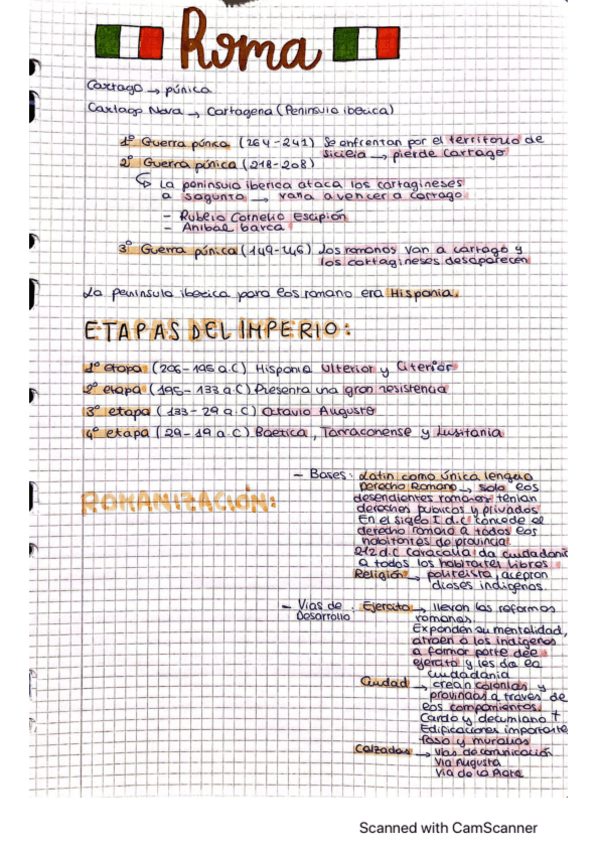 Roma
Cartago → púnica
Cartago Nova → Cartagena (Peninsula iberica)
1º Guerra púnica (264-241) Se enfrentan por el territorio de
sicilia → pierde Cartago
2º Guerra púnica (218-208)
↳ La peninsula iberica ataca los cartagineses
a sagunto → van a vencer a cartago
- Publio Cornelio Escipión
- Anibal barca
3º Guerra púnica (149-146) Los romanos van a cartago y
los cartagineses desaparecen
La peninsula iberica para los romano era Hispania.
ETAPAS DEL IMPERIO:
1º etapa (206-195 a.C) Hispania Ulterior y Citerior
2º etapa (195-133 a.C) Presenta una gran resistencia
3º etapa (133-29 a.C) Octavio Augusto
4º etapa (29-19 a.C) Baetica, Tarraconense y Lusitania
ROMANIZACIÓN:
- Bases: Latin como única lengua
Derecho Romano → solo los
desendientes romanos tenian
derechos publicos y privados
En el siglo I d.C concede el
derecho romano a todos los
habitantes de provincia
212 d.C Caracalla da cuidadania
a todos los habitantes libros
Religión → politeista, acepron
dioses indigenos.
- Vias de Desarrollo: Ejercito → llevan las reformas
romanas.
Expanden su mentalidad,
atraen a los indigenos
a formar parte del
ejercito y les da la
cuidadania
Ciudad → crean colonias y
provincias a través de
los campamientos.
Cardo y decumano +
Edificaciones importante
foso y murallas
Calzadas → Vias de comunicación
Via Augusta
Via de la Plata
Scanned with CamScanner